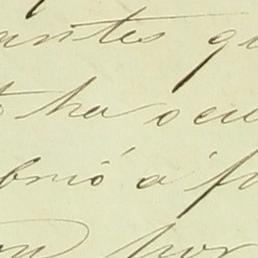 antes qu
t ha ocu
brió á f
por